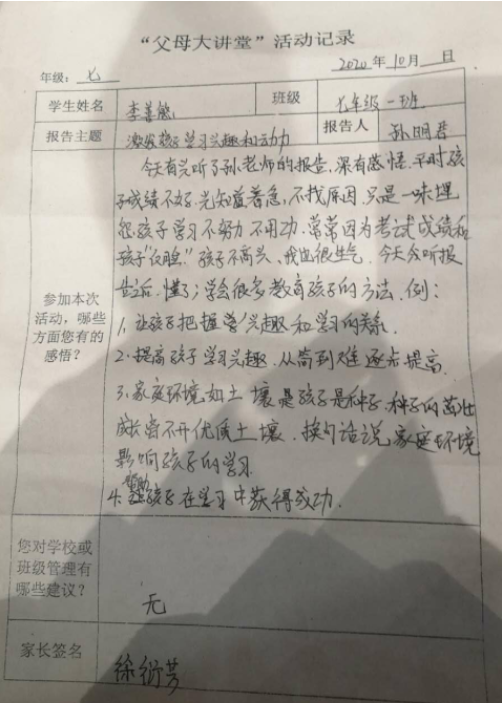 “父母大讲堂”活动记录
年级：七 2020年10月 日
学生姓名 李善 班级 七年级一班
报告主题 激发孩子学习兴趣和动力 报告人 孙明
今天有兴听了孙老师的报告，深有感悟.平时孩
子成绩不好.光知道着急，不找原因.只是一味埋
怨孩子学习不努力 不用功.常常因为考试成绩和
孩子“反脸”孩子不高兴、我也很生气.今天会听报
告之后.懂了；学会很多教育孩子的方法.例：
参加本次
活动，哪些
方面您有的
感悟？
1、让孩子把握 兴趣和学习的关系.
2.提高孩子学习兴趣.从简到难逐步提高.
3、家庭环境如土壤是孩子是种子.种子的茁壮
成长离不开优质土壤.换句话说家庭环境
影响孩子的学习.
4.帮助孩子在学习中获得成功.
您对学校或
班级管理有
哪些建议？
无
家长签名 徐衍芳